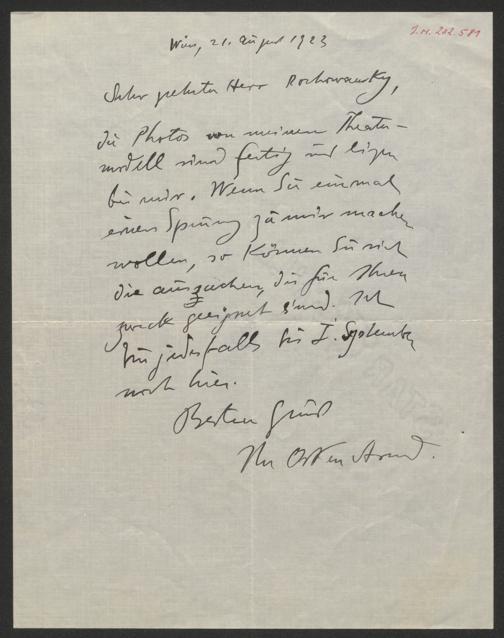 J.N. 202.581
Wien, 21. August 1923
Sehr geehrter Herr Rochowansky,
die Photos von meinem Theater-
modell sind fertig und liegen
bei mir. Wenn Sie einmal
einen Sprung zu mir machen
wollen, so können Sie sich
die aussuchen, die für Ihren
zweck geeignet sind. Ich
bin jedesfalls bis 1. September
noch hier.
Besten Gruß
Ihr Oskar Strnad.